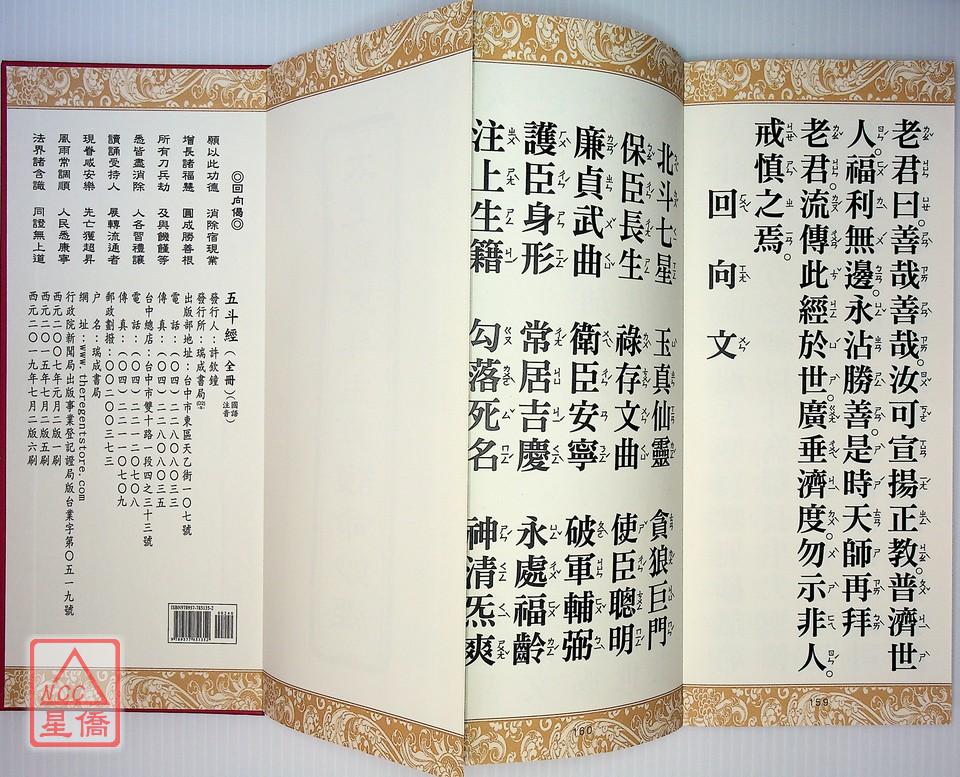 老君曰。善哉善哉。汝可宣揚正教。普濟世
人。福利無邊。永沾勝善。是時天師再拜
老君。流傳此經於世。廣垂濟度。勿示非人。
戒慎之焉。
回向文
159
北斗七星 玉真仙靈 貪狼巨門
保臣長生 祿存文曲 使臣聰明
廉貞武曲 衛臣安寧 破軍輔弼
護臣身形 常居吉慶 永處福齡
注上生籍 勾落死名 神清炁爽
160
◎回向偈◎
願以此功德 消除宿現業
增長諸福慧 圓成勝善根
所有刀兵劫 及與饑饉等
悉皆盡消除 人各習禮讓
讀誦受持人 展轉流通者
現眷咸安樂 先亡獲超昇
風雨常調順 人民悉康寧
法界諸含識 同證無上道
五斗經(全冊)(國語注音)
發行人:許欽鐘
發行所:瑞成書局
出版部地址:台中市東區天乙街一〇七號
電話:(〇四)二二八〇八〇三三
傳真:(〇四)二二八〇八〇三五
台中總店:台中市雙十路一段四之三十三號
電話:(〇四)二二一二〇七〇八
傳真:(〇四)二二一一〇七〇九
郵政劃撥:〇二〇〇三二七三
户名:瑞成書局
網址:www.theregentstore.com
行政院新聞局出版事業登記證局版台業字第〇五一九號
西元二〇〇七年元月二版一刷
西元二〇一五年七月二版五刷
西元二〇一九年七月二版六刷
ISBN 978957-785135-2
NCC
星僑